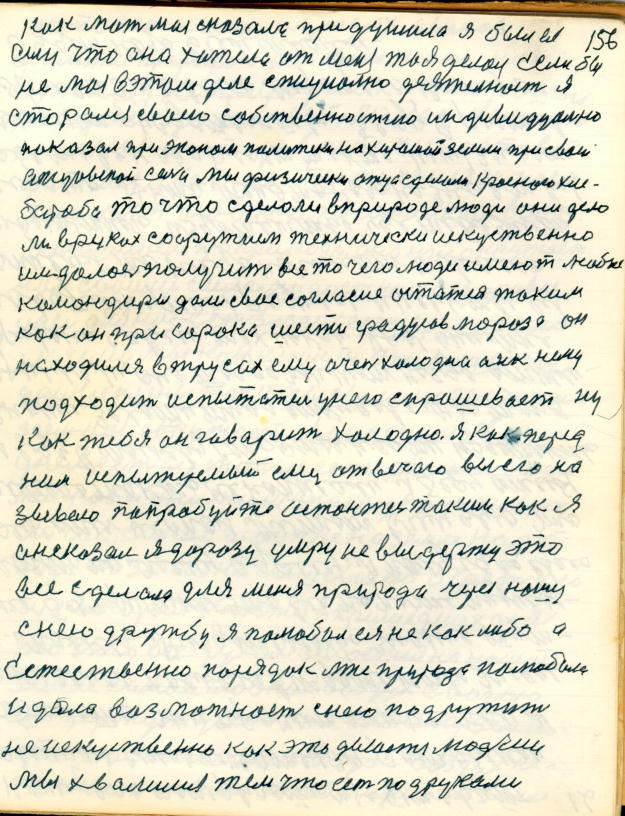 156
как мать моя сказала придушила я был ея
сын что она хотела от меня то я делал Если бы
не моя в этом деле специально деятельност я
старался своею собственностию индивидуально
показал при эконом политики на хорошой земли при своей
отцовской сохи мы физически отца сделали красного хле-
бароба то что сделали в природе люди они дело
ли в руках соорутили технически искуственно
получит все то чего люди имеют любые
командиры дали свое согласие остатся таким
как он при сорока шести градусов мороза он
находился в трусах ему очен холодна а як нему
подходит испытател у него спрашевает ну
как тебя он гаварит холодно. Я как перед
ним испытуемый ему отвечаю вы его на
звали попробуйте остантся таким как я
он сказал я сразу умру не выдержу это
все сделала для меня природа через нашу
с нею дружбу я полюбил ея не как либо а
Естественно порядок мне природа полюбила
и дала возможност с нею подружит
не искуственно как это делают люди
мы хвалимся тем что ест под руками